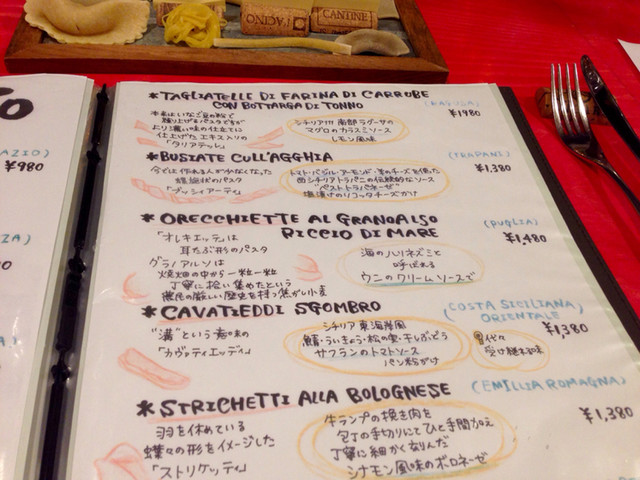 PACINO
CANTINE
*TAGLIATELLE DI FARINA DI CARRUBE
CON BOTTARGA DI TONNO
(RAGUSA)
¥1980
練り上げるパスタですが
より濃い味の仕立てに
仕上げたエキス入りの
「タリアテッレ」
シチリア州 南部ラグーザの
マグロのカラスミソース
レモン風味
*BUSIATE CULL'AGGHIA
(TRAPANI)
¥1,380
今では作れる人が少なくなった
螺旋状のパスタ
「ブッシィアーティ」
トマト・バジル・アーモンド・羊のチーズを使った
西シチリアトラパニの伝統的なソース
"ペストトラパネーゼ"
塩漬けのリコッタチーズがけ
*ORECCHIETTE AL GRANOALSO
RICCIO DI MARE
(PUGLIA)
¥1,480
「オレキエッテ」は
耳たぶ形のパスタ
グラノアルソは
焼畑の中から一粒一粒
丁寧に拾い集めたという
農民の厳しい歴史を持つ焦がし小麦
海のハリネズミと
呼ばれる
ウニのクリームソースで
*CAVATIEDDI SGOMBRO
(COSTA SICILIANA
ORIENTALE
¥1,380
"溝"という意味の
「カヴァティエッディ」
シチリア東海岸風
鯖・ういきょう・松の実・干しぶどう
サフランのトマトソース
パン粉がけ
代々
受け継ぐ味
*STRICHETTI ALLA BOLOGNESE
(EMILLIA ROMAGNA)
¥1,380
羽を休めている
蝶々の形をイメージした
「ストリケッティ」
牛ランプの挽き肉を
包丁の手切りにてひと手間加え
丁寧に細かく刻んだ
シナモン風味のボロネーゼ
AZIO)
¥980
ZA)